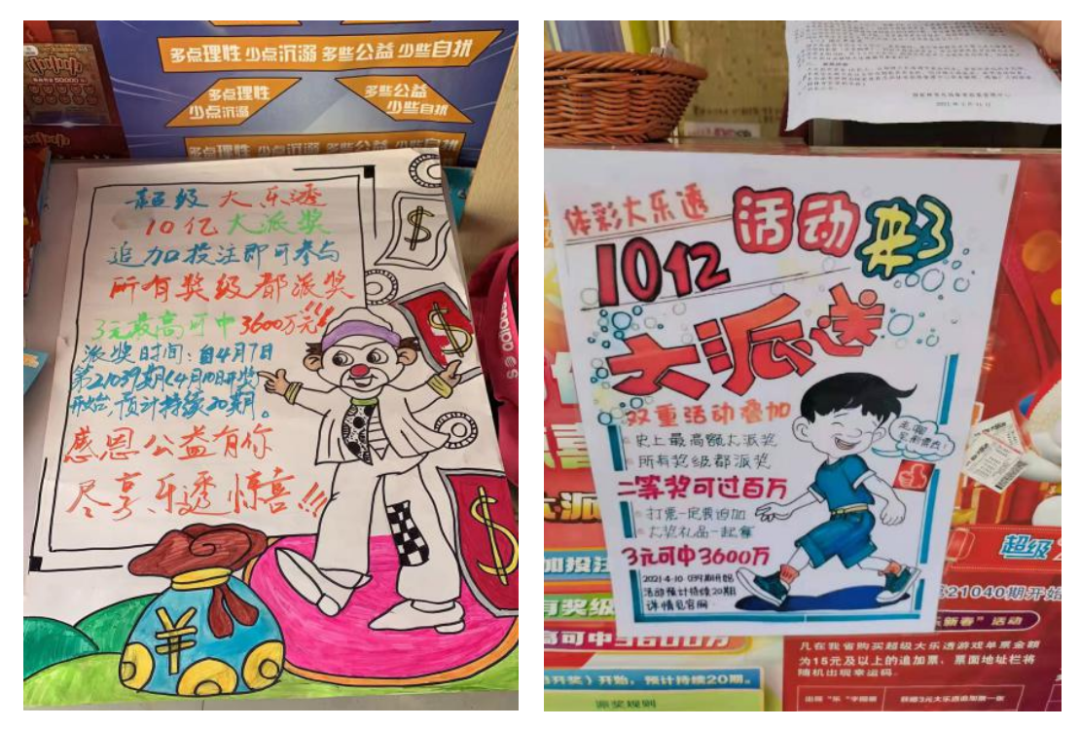 多点理性 少点沉溺 多些公益 少些自扰
多点理性
少点沉溺
多些公益
少些自扰
多点理性 少点沉溺 多些公益 少些自扰
超级大乐透
10亿大派奖
追加投注即可参与
所有奖级都派奖
3元最高可中3600万元!!
派奖时间:自4月7日
第21039期(4月10日开奖)
开始,预计持续20期。
感恩公益有你
尽享乐透惊喜!!!
体彩大乐透
活动来了
10亿
大派送
双重活动叠加
史上最高额大派奖
所有奖级都派奖
二等奖可过百万
打票一定要追加
大奖礼品一起赢
3元可中3600万
2021-4-10 039期开始
活动预计持续20期
详情见官网
超级
加投注
有奖级
高可中3600万
开奖)开始,预计持续20期。
派奖规则
21040期开始
乐新春”活动
凡在我省购买超级大乐透游戏单票金额
为15元及以上的追加票,票面地址栏将
随机出现幸运码。
出现“乐”字图案
获赠3元大乐透追加票一张